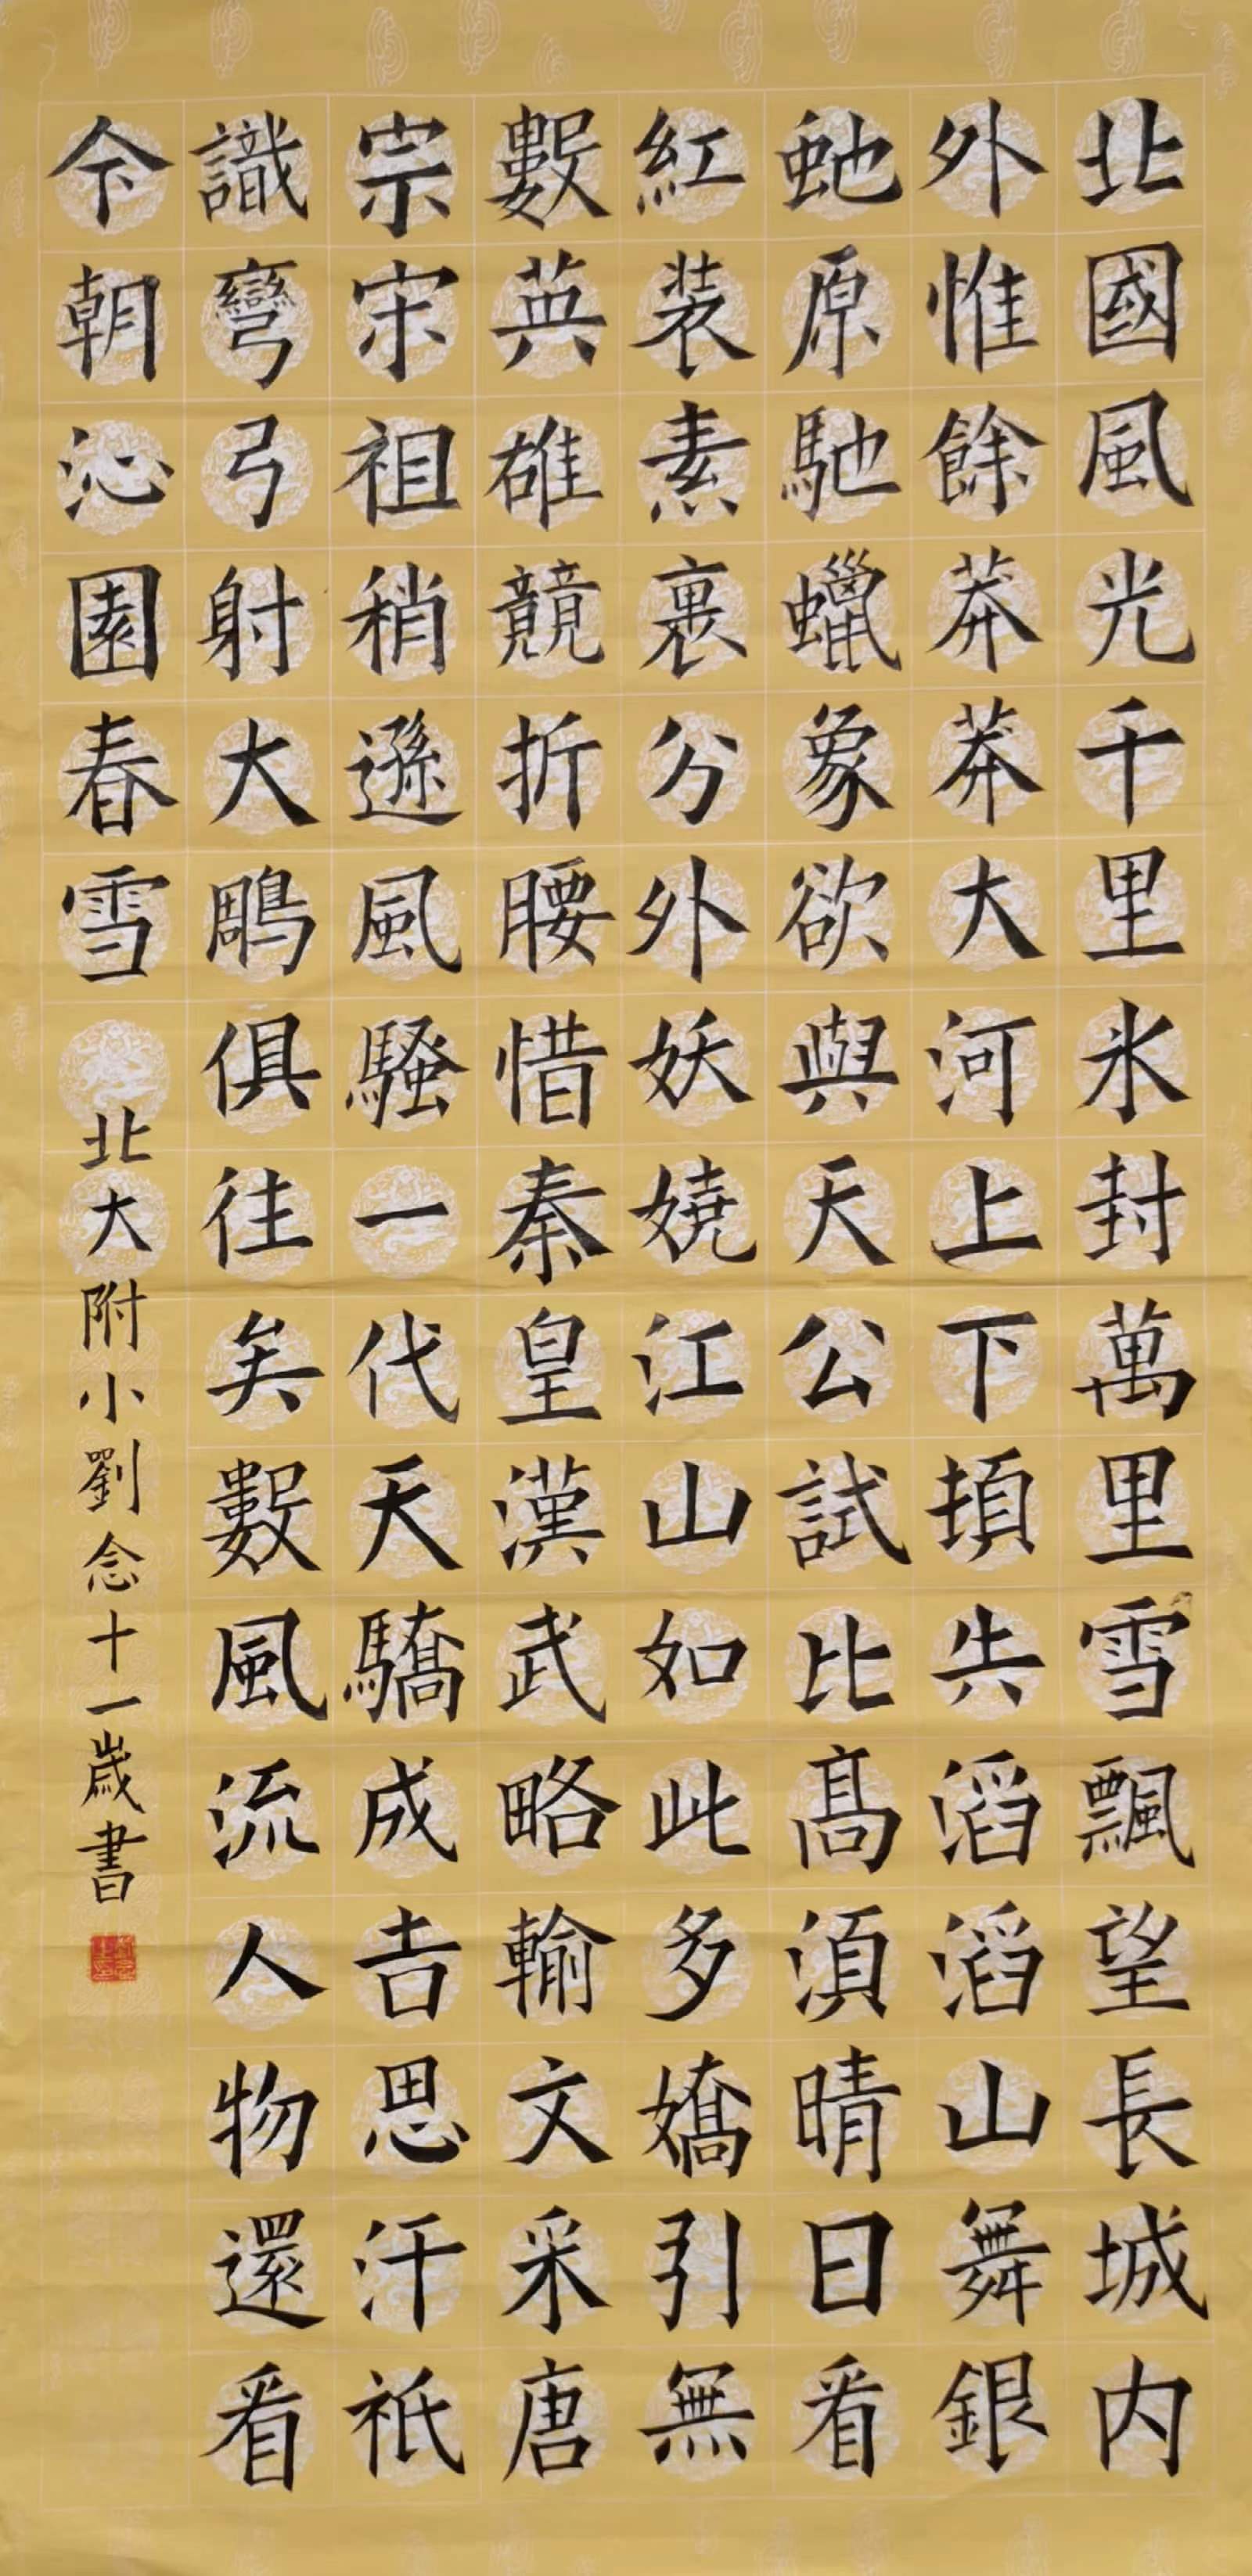 北國風光千里氷封萬里雪飄望長城内
外惟餘莽莽大河上下頓失滔滔山舞銀
虵原馳蠟象欲與天公試比髙湏晴日看
紅装素裹分外妖嬈江山如此多嬌引無
數英雄競折腰惜秦皇漢武略輸文采唐
宗宋祖稍遜風騷一代天驕成吉思汗祇
識彎弓射大鵰俱往矣數風流人物還看
今朝沁園春雪
北大附小劉念十一歲書